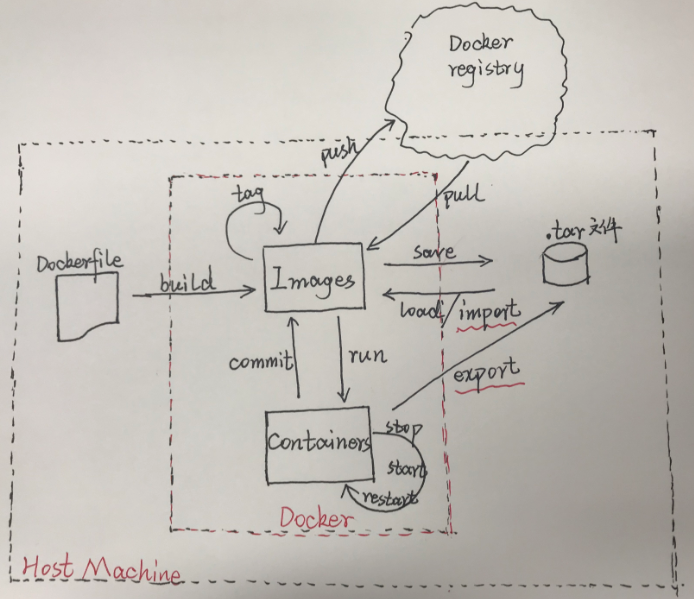 Docker
registry
push
tag
pull
.tar文件
Dockerfile
build
Images
save
load/import
commit
run
export
Containers
stop
start
restart
Docker
Host Machine